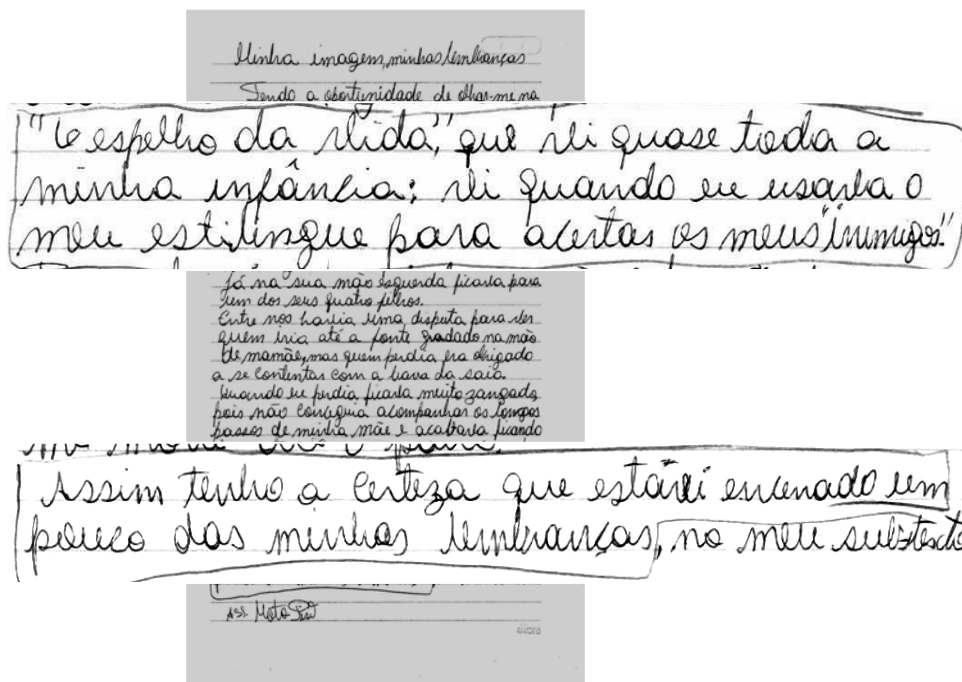 Minha imagem, minhas lembranças
Tendo a oportunidade de olhar-me na
"O espelho da vida", que vi quase toda a
minha infância: vi quando eu usava o
meu estilingue para acertar os meus "inimigos".
Já na sua mão esquerda ficava para
um dos seus quatro filhos.
Entre nós havia uma disputa para ver
quem iria até a fonte grudado na mão
de mamãe, mas quem perdia era obrigado
a se contentar com a barra da saia.
Quando eu perdia ficava muito zangado,
pois não conseguia acompanhar os longos
passos de minha mãe e acabava ficando
Assim tenho a certeza que estarei encenado um
pouco das minhas lembranças, no meu subtexto
Ass.